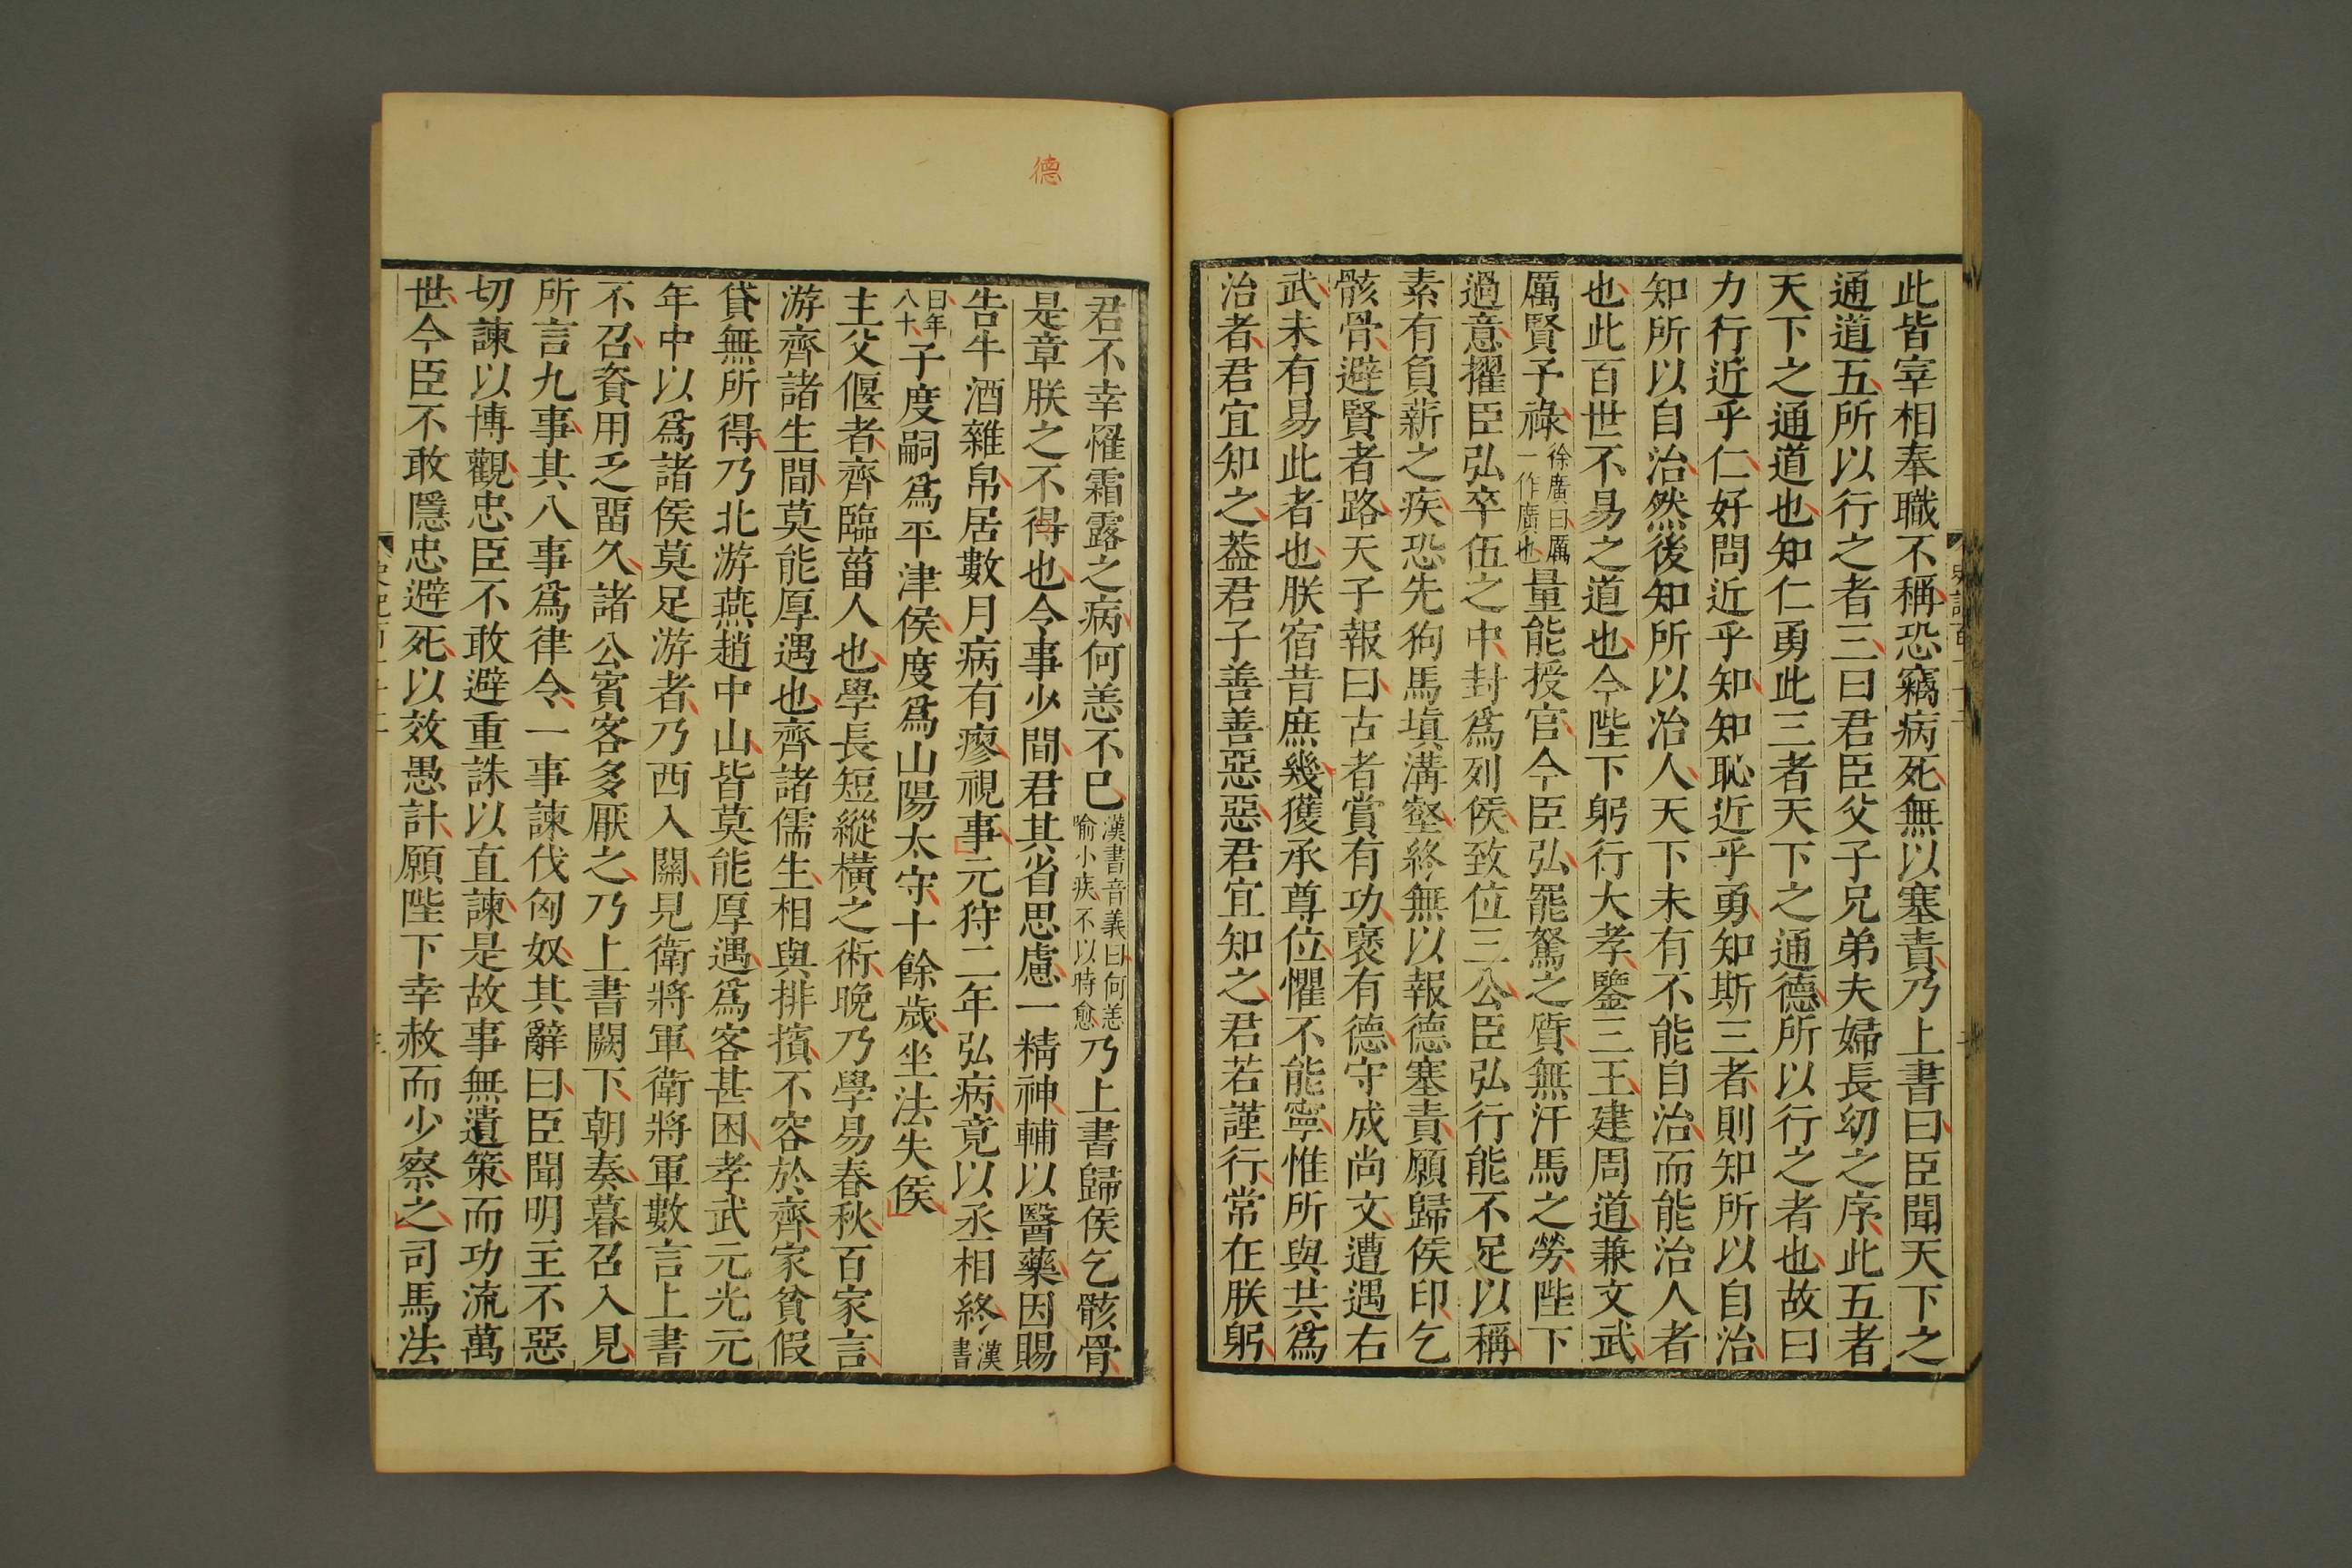 此皆宰相奉職不稱恐竊病死無以塞責乃上書曰臣聞天下之
通道五所以行之者三曰君臣父子兄弟夫婦長幼之序此五者
天下之通道也知仁勇此三者天下之通德所以行之者也故曰
力行近乎仁好問近乎知知恥近乎勇知斯三者則知所以自治
知所以自治然後知所以治人天下未有不能自治而能治人者
也此百世不易之道也今陛下躬行大孝鑒三王建周道兼文武
厲賢予祿徐廣曰厲一作廣也量能授官今臣弘罷駑之質無汗馬之勞陛下
過意擢臣弘卒伍之中封爲列侯致位三公臣弘行能不足以稱
素有負薪之疾恐先狗馬塡溝壑終無以報德塞責願歸侯印乞
骸骨避賢者路天子報曰古者賞有功襃有德守成尚文遭遇右
武未有易此者也朕宿昔庶幾獲承尊位懼不能寧惟所與共爲
治者君宜知之葢君子善善惡惡君宜知之君若謹行常在朕躬
德
君不幸懼霜露之病何恙不已漢書音義曰何恙喻小疾不以時愈乃上書歸侯乞骸骨
是章朕之不得也今事少間君其省思慮一精神輔以醫藥因賜
告牛酒雜帛居數月病有瘳視事元狩二年弘病竟以丞相終漢書
曰年八十子度嗣爲平津侯度爲山陽太守十餘歲坐法失侯
主父偃者齊臨菑人也學長短縱橫之術晚乃學易春秋百家言
游齊諸生間莫能厚遇也齊諸儒生相與排擯不容於齊家貧假
貸無所得乃北游燕趙中山皆莫能厚遇爲客甚困孝武元光元
年中以爲諸侯莫足游者乃西入關見衛將軍衛將軍數言上書
不召資用乏畱久諸公賓客多厭之乃上書闕下朝奏暮召入見
所言九事其八事爲律令一事諫伐匈奴其辭曰臣聞明主不惡
切諫以博觀忠臣不敢避重誅以直諫是故事無遺策而功流萬
世今臣不敢隱忠避死以效愚計願陛下幸赦而少察之司馬法